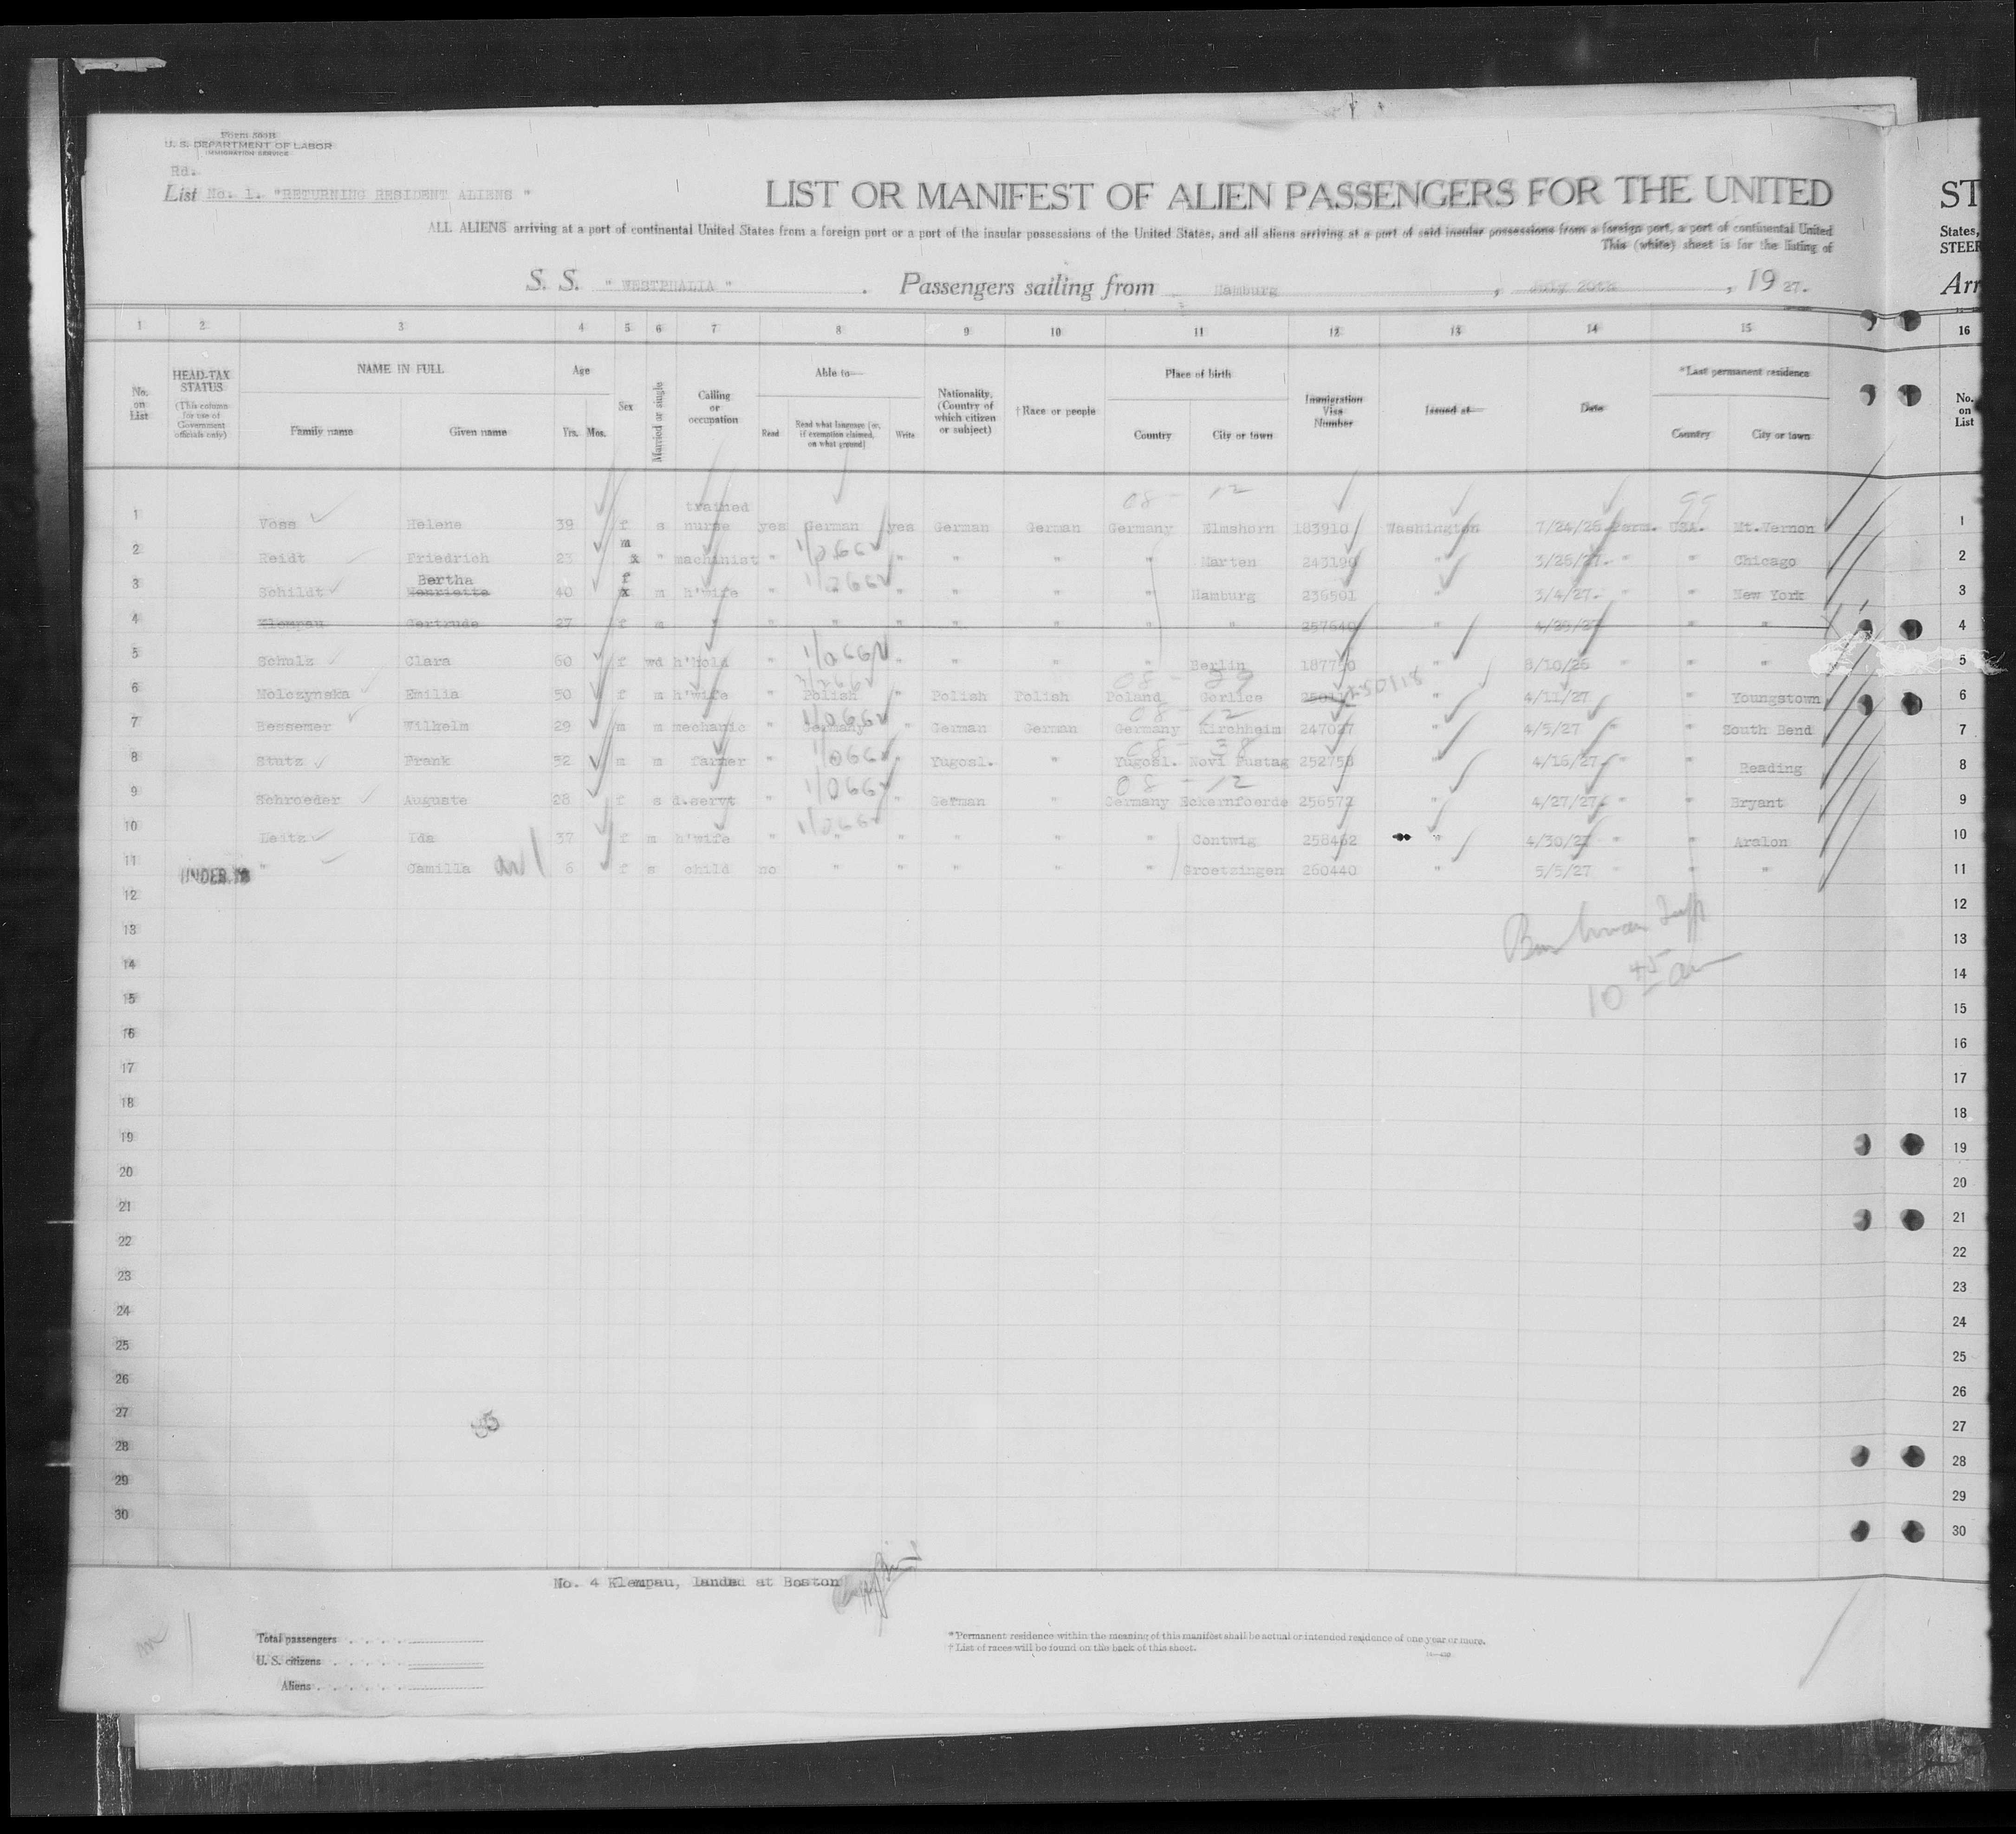 Form 500B
U. S. DEPARTMENT OF LABOR
IMMIGRATION SERVICE
Rd.
List No. 1. "RETURNING RESIDENT ALIENS "
LIST OR MANIFEST OF ALIEN PASSENGERS FOR THE UNITED
ST
ALL ALIENS arriving at a port of continental United States from a foreign port or a port of the insular possessions of the United States, and all aliens arriving at a port of said insular possessions from a foreign port, a port of continental United
States,
This (white) sheet is for the listing of
STEER
S. S. " WESTPHALIA " . Passengers sailing from Hamburg , July 20th , 19 27.
Arr
1 2 3 4 5 6 7 8 9 10 11 12 13 14 15 16
No. on List
HEAD-TAX STATUS (This column for use of Government officials only)
NAME IN FULL
Family name Given name
Age
Yrs. Mos.
Sex
Married or single
Calling or occupation
Able to—
Read Read what language (or, if exemption claimed, on what ground) Write
Nationality. (Country of which citizen or subject)
† Race or people
Place of birth
Country City or town
Immigration Visa Number
Issued at—
Date
*Last permanent residence
Country City or town
No. on List
08 - 12
1 Voss Helene 39 f s trained nurse yes German yes German German Germany Elmshorn 183910 Washington 7/24/26 Perm. USA. Mt.Vernon 1
2 Reidt Friedrich 23 m x " machinist " " " " " Marten 243190 " 3/26/27. " " Chicago 2
3 Schildt Bertha Henriette 40 f x m h'wife " " " " " Hamburg 236501 " 3/4/27. " " New York 3
4 Klempau Gertrude 27 f m " " " " " " " " 257640 " 4/29/27 " " 4
5 Schulz Clara 60 f wd h'hold " " " " " Berlin 187790 " 8/10/26 " " " 5
08 - 29
6 Molozynska Emilia 50 f m h'wife " Polish " Polish Polish Poland Gorlice 250118 " 4/11/27 " Youngstown 6
08 - 12
7 Bessemer Wilhelm 29 m m mechanic " Germany " German German Germany Kirchheim 247027 " 4/5/27 " " South Bend 7
08 - 38
8 Stutz Frank 52 m m farmer " " Yugosl. " Yugosl. Novi Pustag 252758 " 4/16/27. " " Reading 8
08 - 12
9 Schroeder Auguste 28 f s d.servt " " German " Germany Eckernfoerde 256572 " 4/27/27. " " Bryant 9
10 Leitz Ida 37 f m h'wife " " " " " " Contwig 258462 " 4/30/27 " " Aralon 10
11 UNDER 16 " Camilla 6 f s child no " " " " " Groetzingen 260440 " 5/5/27 " " " 11
12 12
13 13
14 14
10 45 am
15 15
16 16
17 17
18 18
19 19
20 20
21 21
22 22
23 23
24 24
25 25
26 26
27 27
28 28
29 29
30 30
No. 4 Klempau, landed at Boston
Total passengers
U. S. citizens
Aliens
* Permanent residence within the meaning of this manifest shall be actual or intended residence of one year or more.
† List of races will be found on the back of this sheet.